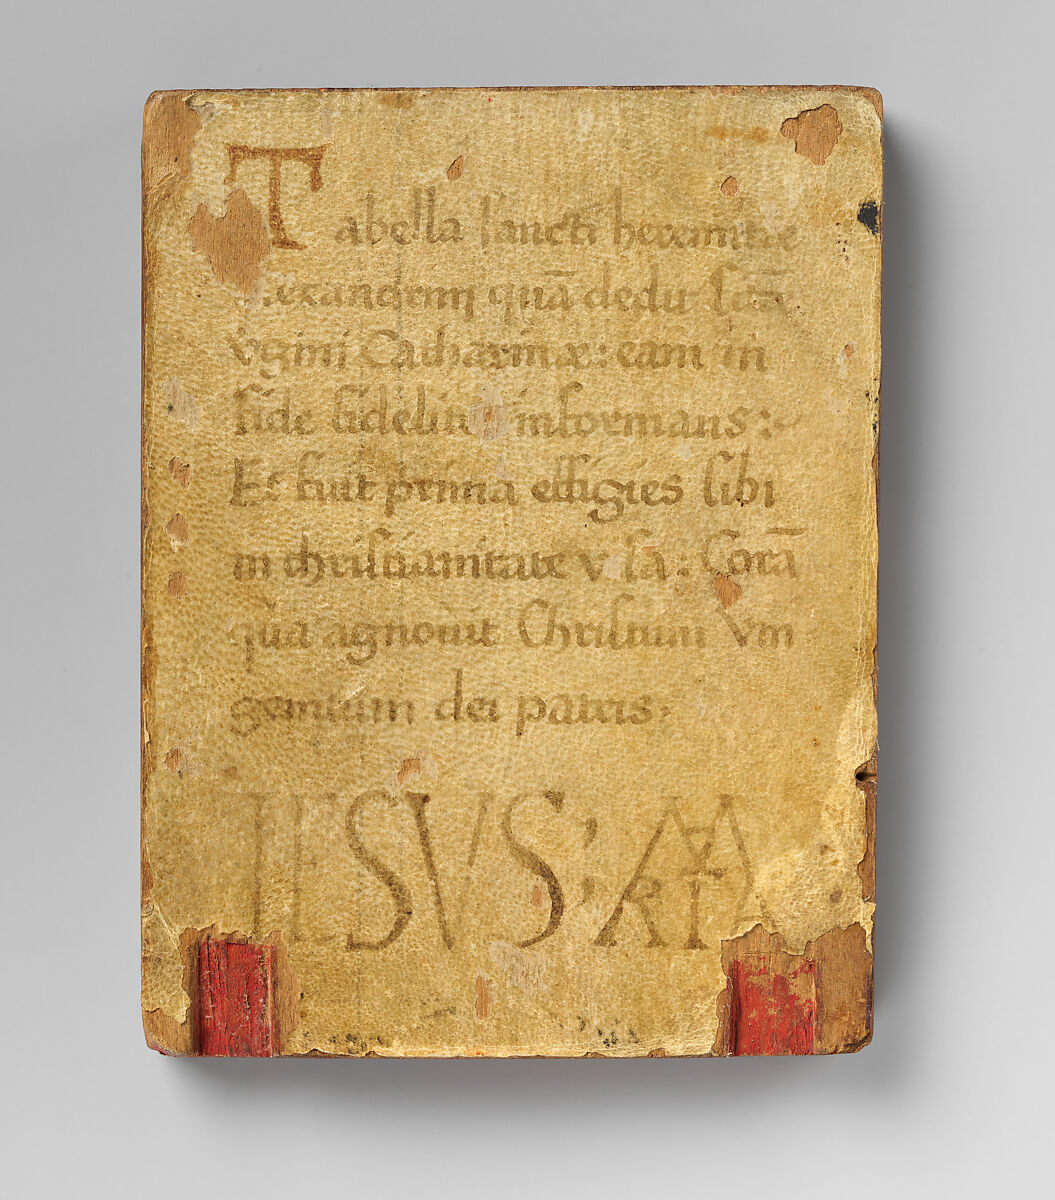 Tabella sancti heremitae
alexandrini quā dedit sātæ
v̓gini Catharinæ: eam in
fide fideliter informans:
Et fuit prima effigies sibi
in christianitate visa: Corā
qua agnovit Christum Vni
genitum dei patris.
IESVS; MARIA